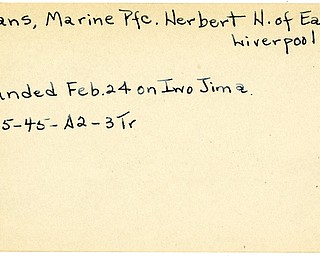 ans, Marine Pfc. Herbert H. of Ea
Liverpool
unded Feb. 24 on Iwo Jima.
5-45-A2-3Tr